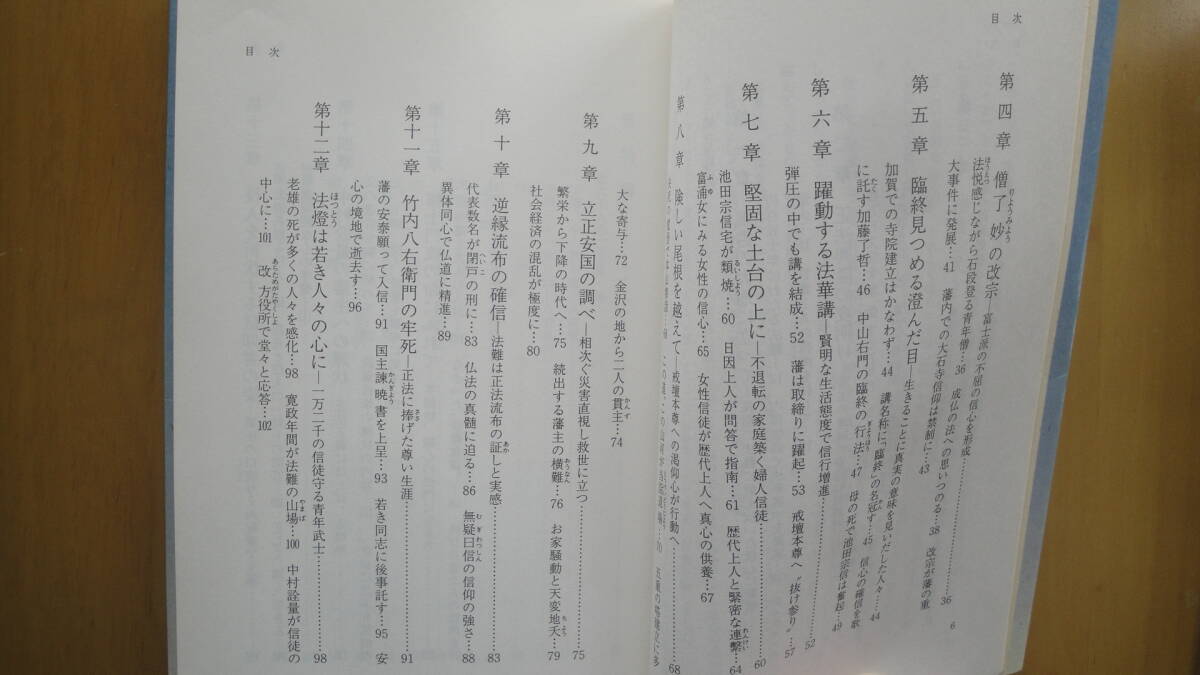 目次
第四章 僧了妙の改宗―富士派の不屈の信心を形成…………36
法悦感じながら石段登る青年僧…36 成仏の法への思いつのる…38 改宗が藩の重
大事件に発展…41 藩内での大石寺信仰は禁制に…43
第五章 臨終見つめる澄んだ目―生きることに真実の意味を見いだした人々…44
加賀での寺院建立はかなわず…44 講名称に「臨終」の名冠す…45 信心の確信を歌
に託す加藤了哲…46 中山右門の臨終の行法…47 母の死で池田宗信は奮起…49
第六章 躍動する法華講―賢明な生活態度で信行増進…………52
弾圧の中でも講を結成…52 藩は取締りに躍起…53 戒壇本尊へ〝抜け参り〟…57
第七章 堅固な土台の上に―不退転の家庭築く婦人信徒…………60
池田宗信宅が類焼…60 日因上人が問答で指南…61 歴代上人と緊密な連繫…64
富浦女にみる女性の信心…65 女性信徒が歴代上人へ真心の供養…67
第八章 険しい尾根を越えて―戒壇本尊への渇仰心が行動へ…………68
6
目次
大な寄与…72 金沢の地から二人の貫主…74
第九章 立正安国の調べ―相次ぐ災害直視し救世に立つ…………75
繁栄から下降の時代へ…75 続出する藩主の横難…76 お家騒動と天変地夭…79
社会経済の混乱が極度に…80
第十章 逆縁流布の確信―法難は正法流布の証しと実感…………83
代表数名が閉戸の刑に…83 仏法の真髄に迫る…86 無疑曰信の信仰の強さ…88
異体同心で仏道に精進…89
第十一章 竹内八右衛門の牢死―正法に捧げた尊い生涯…………91
藩の安泰願って入信…91 国主諫暁書を上呈…93 若き同志に後事託す…95 安
心の境地で逝去す…96
第十二章 法燈は若き人々の心に―一万二千の信徒守る青年武士…………98
老雄の死が多くの人々を感化…98 寛政年間が法難の山場…100 中村詮量が信徒の
中心に…101 改方役所で堂々と応答…102